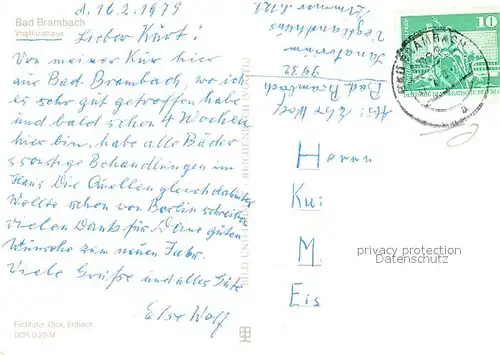 Bad Brambach
Vogtlandhaus
d. 16.2.1979
Lieber Kurt!
Von meiner Kur hier
aus Bad-Brambach, wo ich
es sehr gut getroffen habe
und bald schon 4 Wochen
hier bin, habe alle Bäder
sonstige Behandlungen im
Haus Die Quellen gleich dahinter
Wollte schon von Berlin schreiben
vielen Dank für Deine guten
Wünsche zum neuen Jahr.
Viele Grüße und alles Gute
Else Wolf
Abs: Else Wolf
Bad. Brambach
9932
Sanatorium
Vogtlandhaus
Zimmer
10
BAD BRAMBACH
Herrn
Ku:
M.
Eis
privacy protection
Daten VM